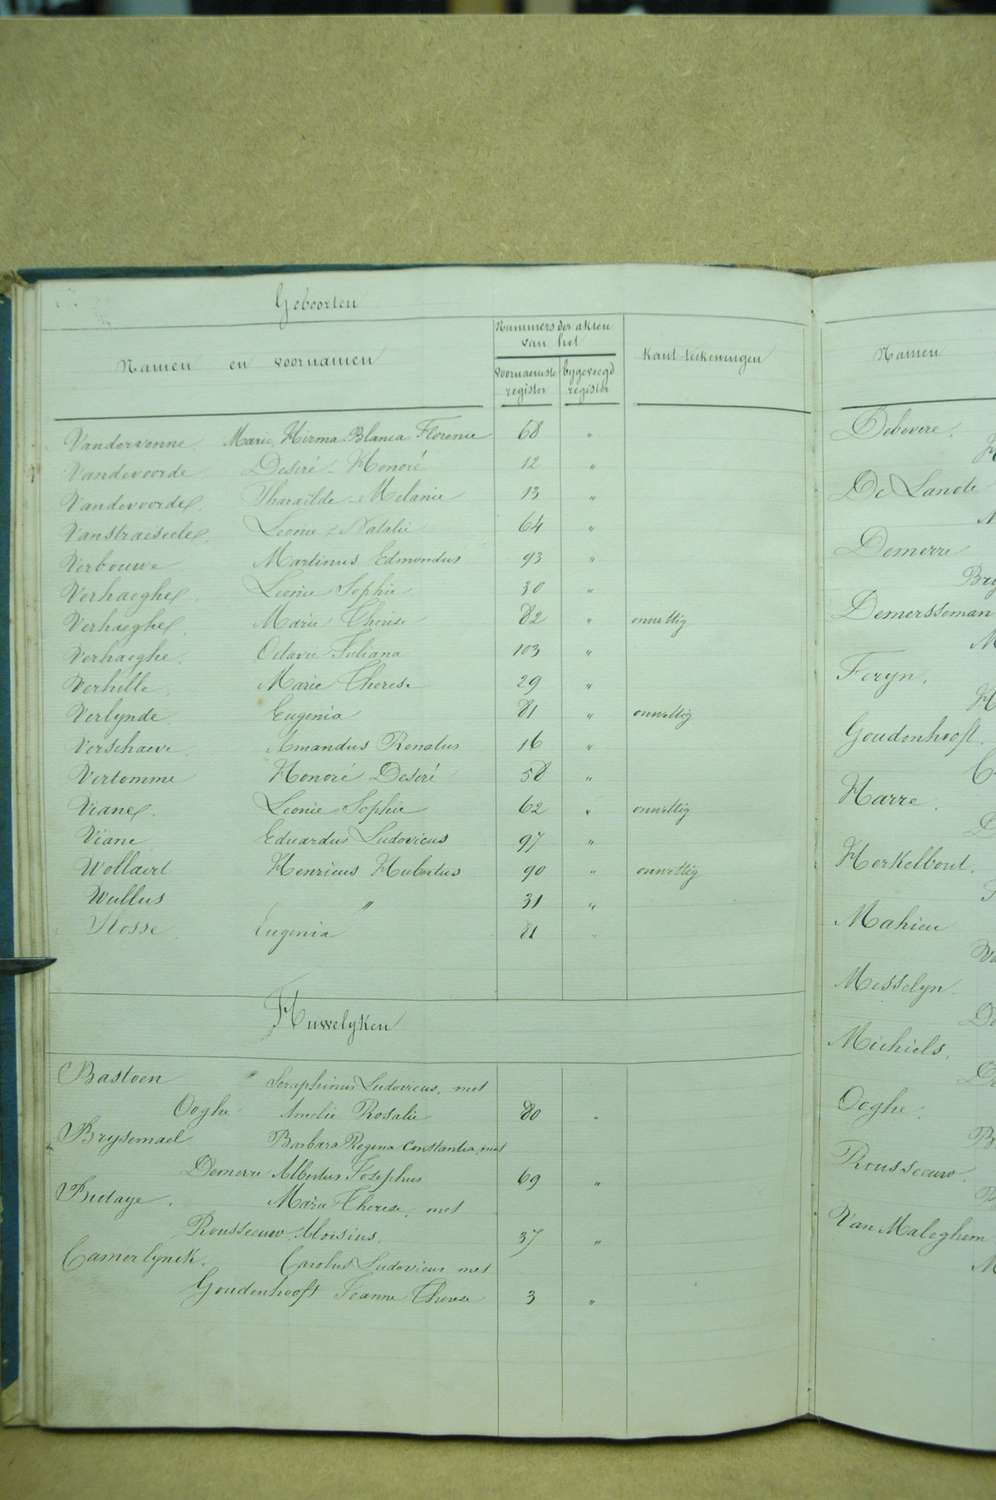 Geboorten
Namen en voornamen
Nummers der akten van het
voornaemste register
bygevoegd register
Kant teekeningen
Vandevenne Marie Hirma Blanca Florence 68 "
Vandevoorde Desiré Honoré 12 "
Vandevoorde Tharailde Melanie 13 "
Vanstraeseele Leonie Natalie 64 "
Verbouwe Martinus Edmondus 93 "
Verhaeghe Leonie Sophie 30 "
Verhaeghe Marie Therese 82 " onwettig
Verhaeghe Octavie Juliana 103 "
Verhelle Marie Therese 29 "
Verlynde Eugenia 81 " onwettig
Verschaeve Amandus Renatus 16 "
Vertomme Honoré Desiré 58 "
Viane Leonie Sophie 62 " onwettig
Viane Eduardus Ludovicus 97 "
Wollaert Henricus Hubertus 90 " onwettig
Wullus " 31 "
Eugenia 81
Huwelyken
Bastoen Seraphinus Ludovicus, met
Ooghe Amelie Rosalie 80 "
Brysemael Barbara Regina Constantia, met
Demerre Albertus Josephus 69 "
Butaye Marie Therese, met
Rousseeuw Aloisius 37 "
Camerlynck Carolus Ludovicus met
Goudenhooft Joanna Therese 3 "
Namen
Debevere
De Lanote
Demerre
Demersseman
Feryn
Goudenhooft
Harre
Herkelbout
Mahieu
Messelyn
Michiels
Ooghe
Rousseeuw
Van Maleghem